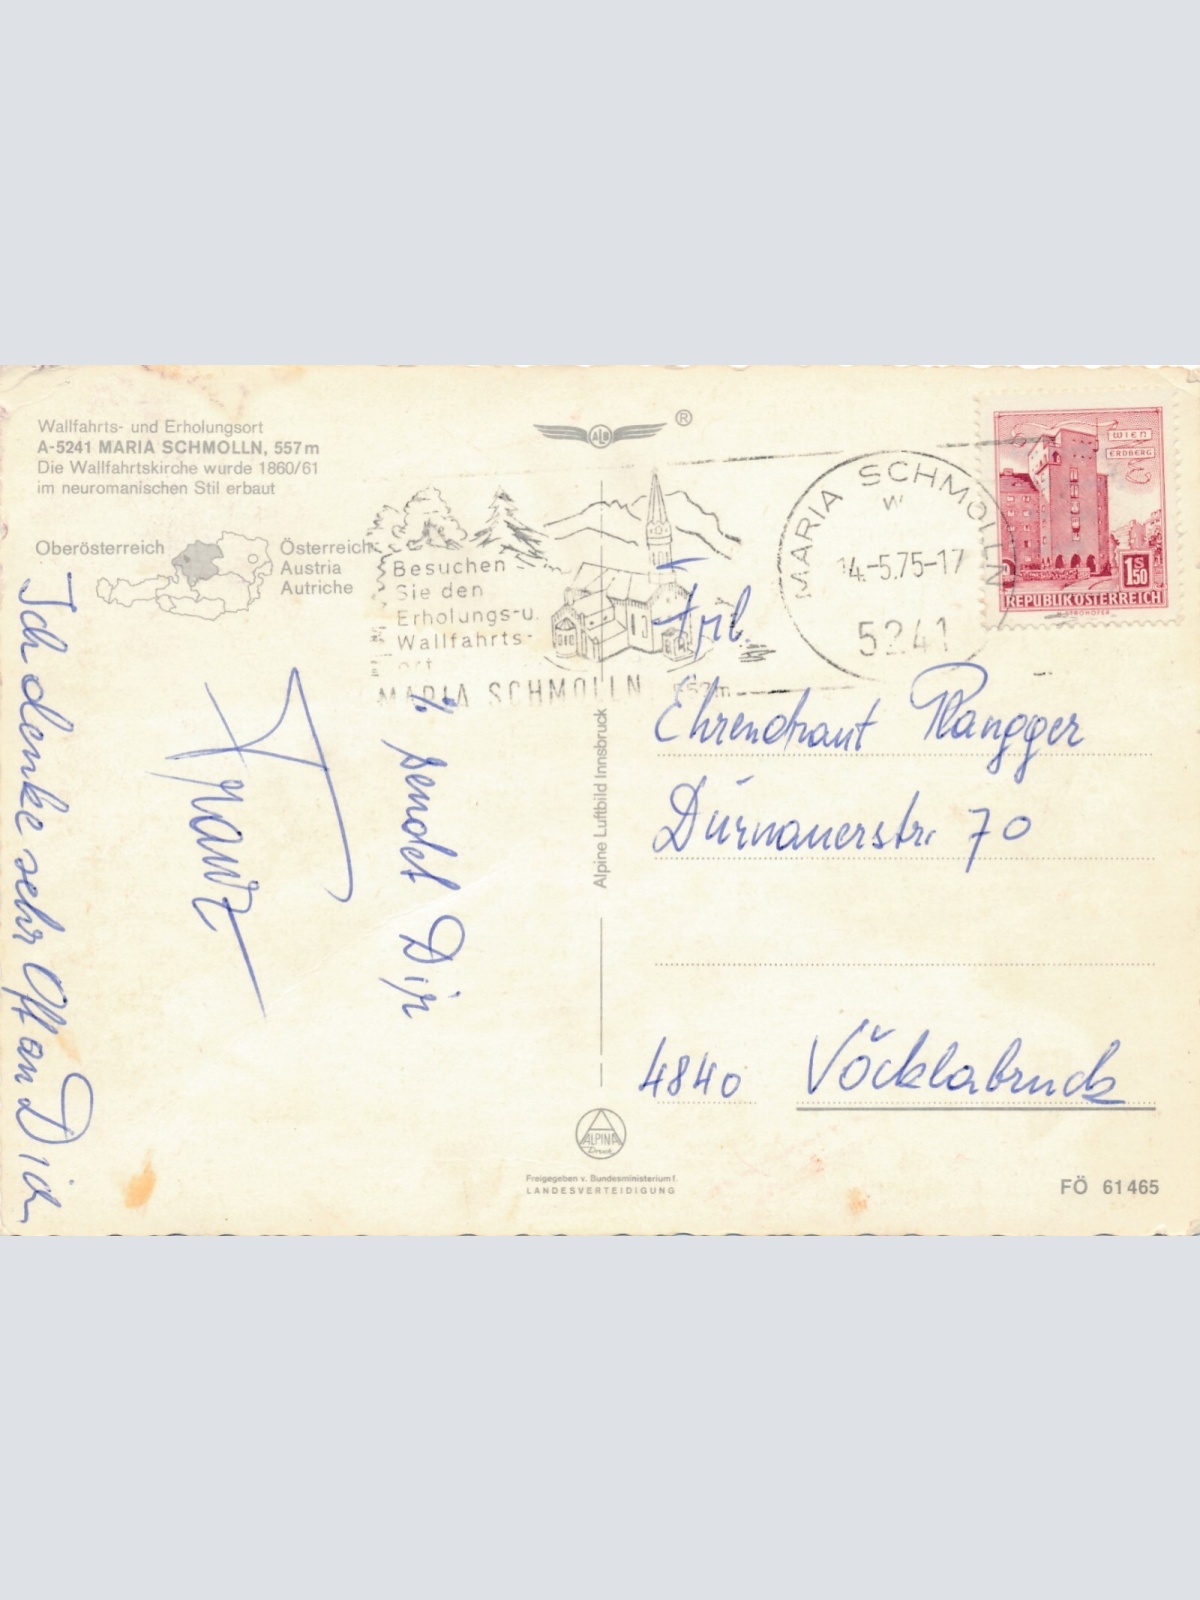 Wallfahrts- und Erholungsort
A-5241 MARIA SCHMOLLN, 557 m
Die Wallfahrtskirche wurde 1860/61
im neuromanischen Stil erbaut
Oberösterreich
Österreich
Austria
Autriche
ALM
®
Besuchen
Sie den
Erholungs-u.
Wallfahrts-
ort
MARIA SCHMOLLN 557m
MARIA SCHMOLLN
14.-5.75-17
5241
WIEN
ERDBERG
S
1 50
REPUBLIK ÖSTERREICH
sendet Dir
Franz
Ich denke sehr Oft an Dich
Alpine Luftbild Innsbruck
Frl.
Ehrentraut Plangger
Dürnauerstr. 70
4840 Vöcklabruck
ALPINA
Druck
Freigegeben v. Bundesministerium f.
LANDESVERTEIDIGUNG
FÖ 61465